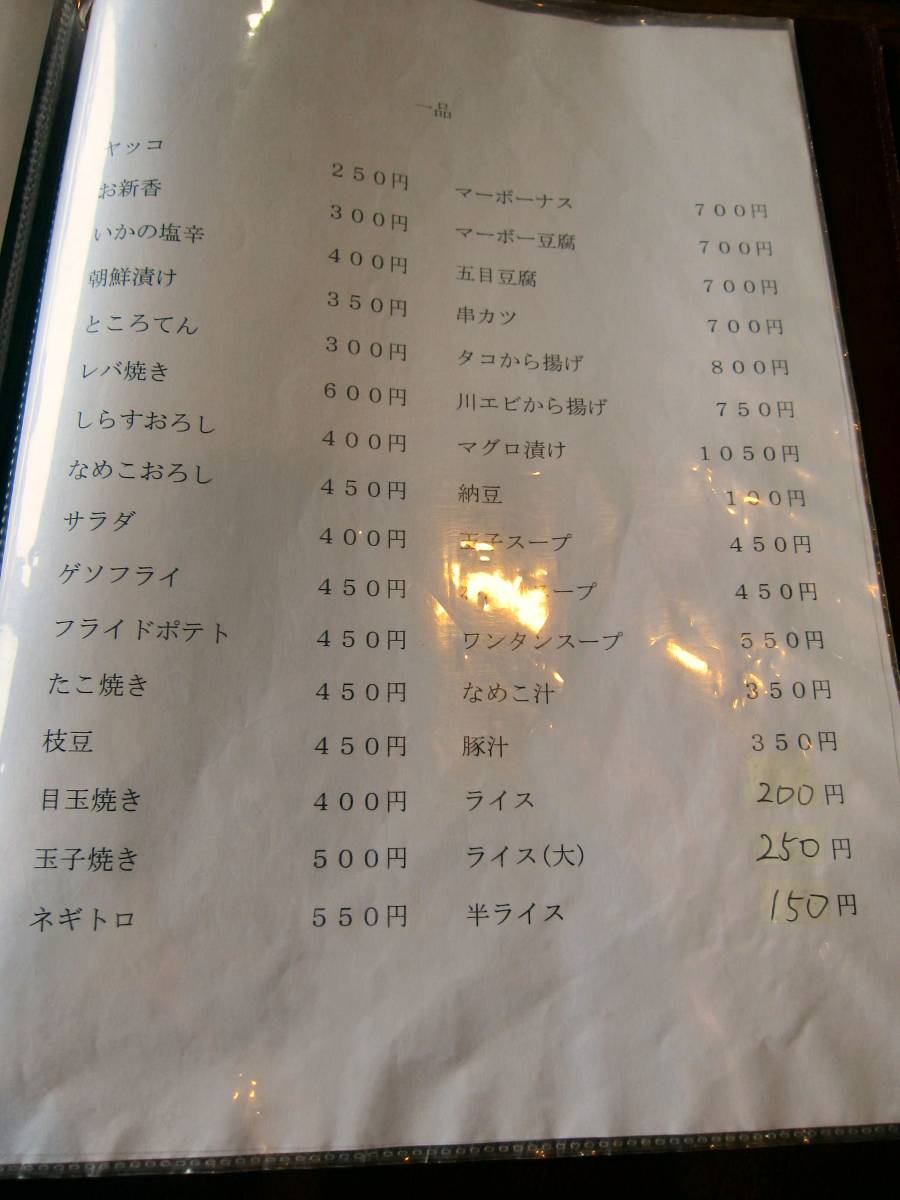 一品
ヤッコ 250円
お新香 300円
いかの塩辛 400円
朝鮮漬け 350円
ところてん 300円
レバ焼き 600円
しらすおろし 400円
なめこおろし 450円
サラダ 400円
ゲソフライ 450円
フライドポテト 450円
たこ焼き 450円
枝豆 450円
目玉焼き 400円
玉子焼き 500円
ネギトロ 550円
マーボーナス 700円
マーボー豆腐 700円
五目豆腐 700円
串カツ 700円
タコから揚げ 800円
川エビから揚げ 750円
マグロ漬け 1050円
納豆 100円
玉子スープ 450円
スープ 450円
ワンタンスープ 550円
なめこ汁 350円
豚汁 350円
ライス 200円
ライス(大) 250円
半ライス 150円